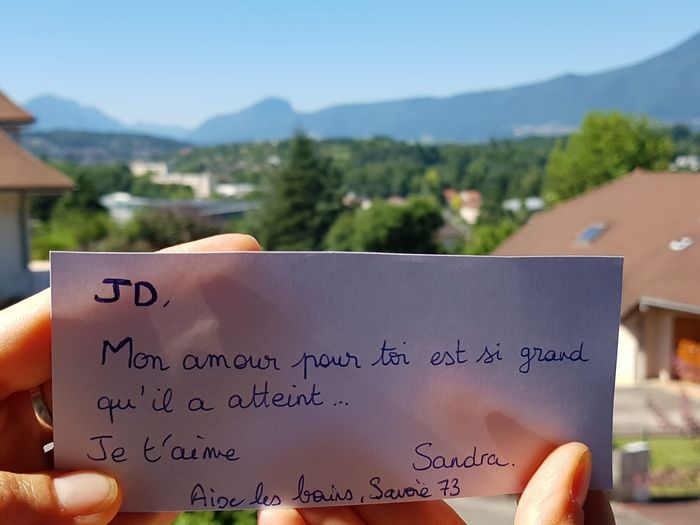 JD,
Mon amour pour toi est si grand
qu'il a atteint...
Je t'aime Sandra.
Aix les bains, Savoie 73